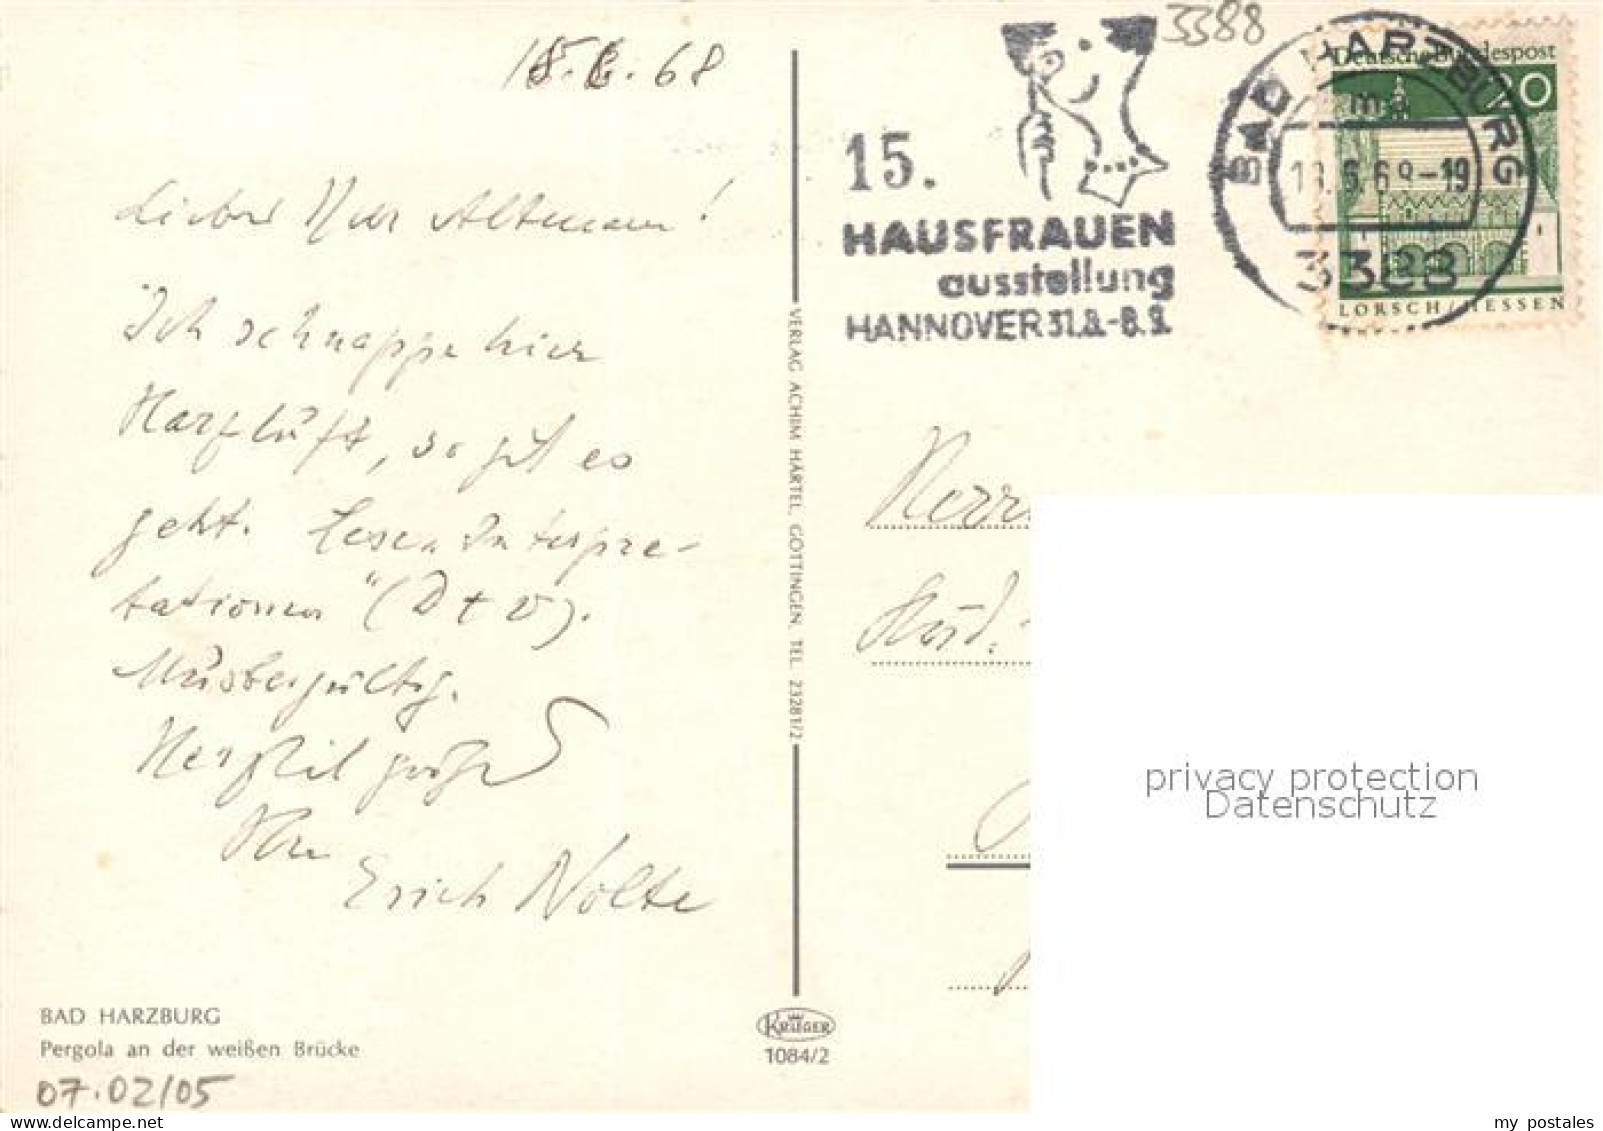 18.6.68
Lieber Herr Altmann!
Ich schnappe hier
Harzluft, so gut es
geht. Lese „Interpre-
tationen" (D + U).
Mustergültig.
Herzlich grüßt
Ihr
Erich Nolte
BAD HARZBURG
Pergola an der weißen Brücke
07.02/05
VERLAG ACHIM HÄRTEL, GÖTTINGEN, TEL. 23281/2
KRÜGER
1084/2
3388
15.
HAUSFRAUEN
ausstellung
HANNOVER 31.8.-8.9.
BAD HARZBURG
18.6.68-19
3388
Deutsche Bundespost
20
LORSCH/HESSEN
Herrn
privacy protection
Datenschutz
my postales